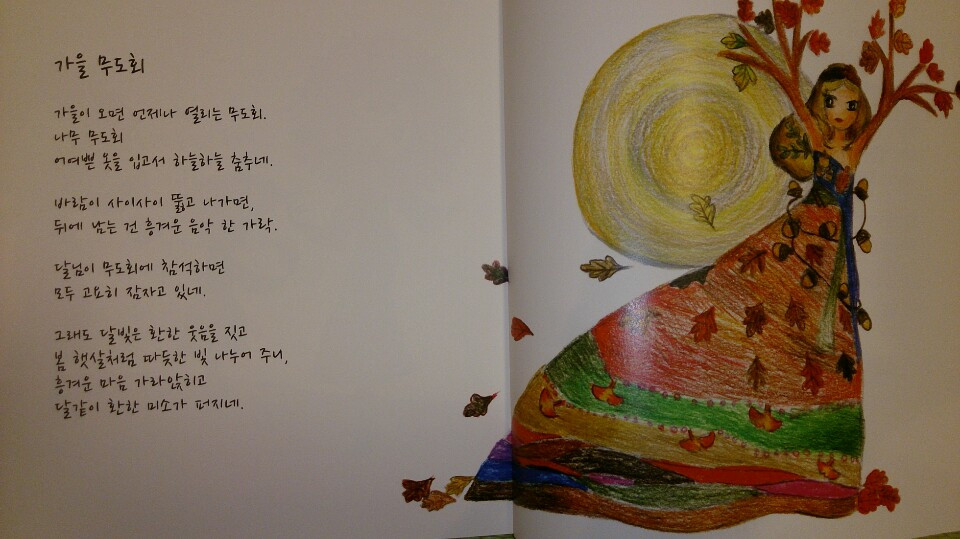 가을 무도회
가을이 오면 언제나 열리는 무도회.
나무 무도회
어여쁜 옷을 입고서 하늘하늘 춤추네.
바람이 사이사이 뚫고 나가면,
뒤에 남는 건 흥겨운 음악 한 가락.
달님이 무도회에 참석하면
모두 고요히 잠자고 있네.
그래도 달빛은 환한 웃음을 짓고
봄 햇살처럼 따듯한 빛 나누어 주니,
흥겨운 마음 가라앉히고
달같이 환한 미소가 퍼지네.